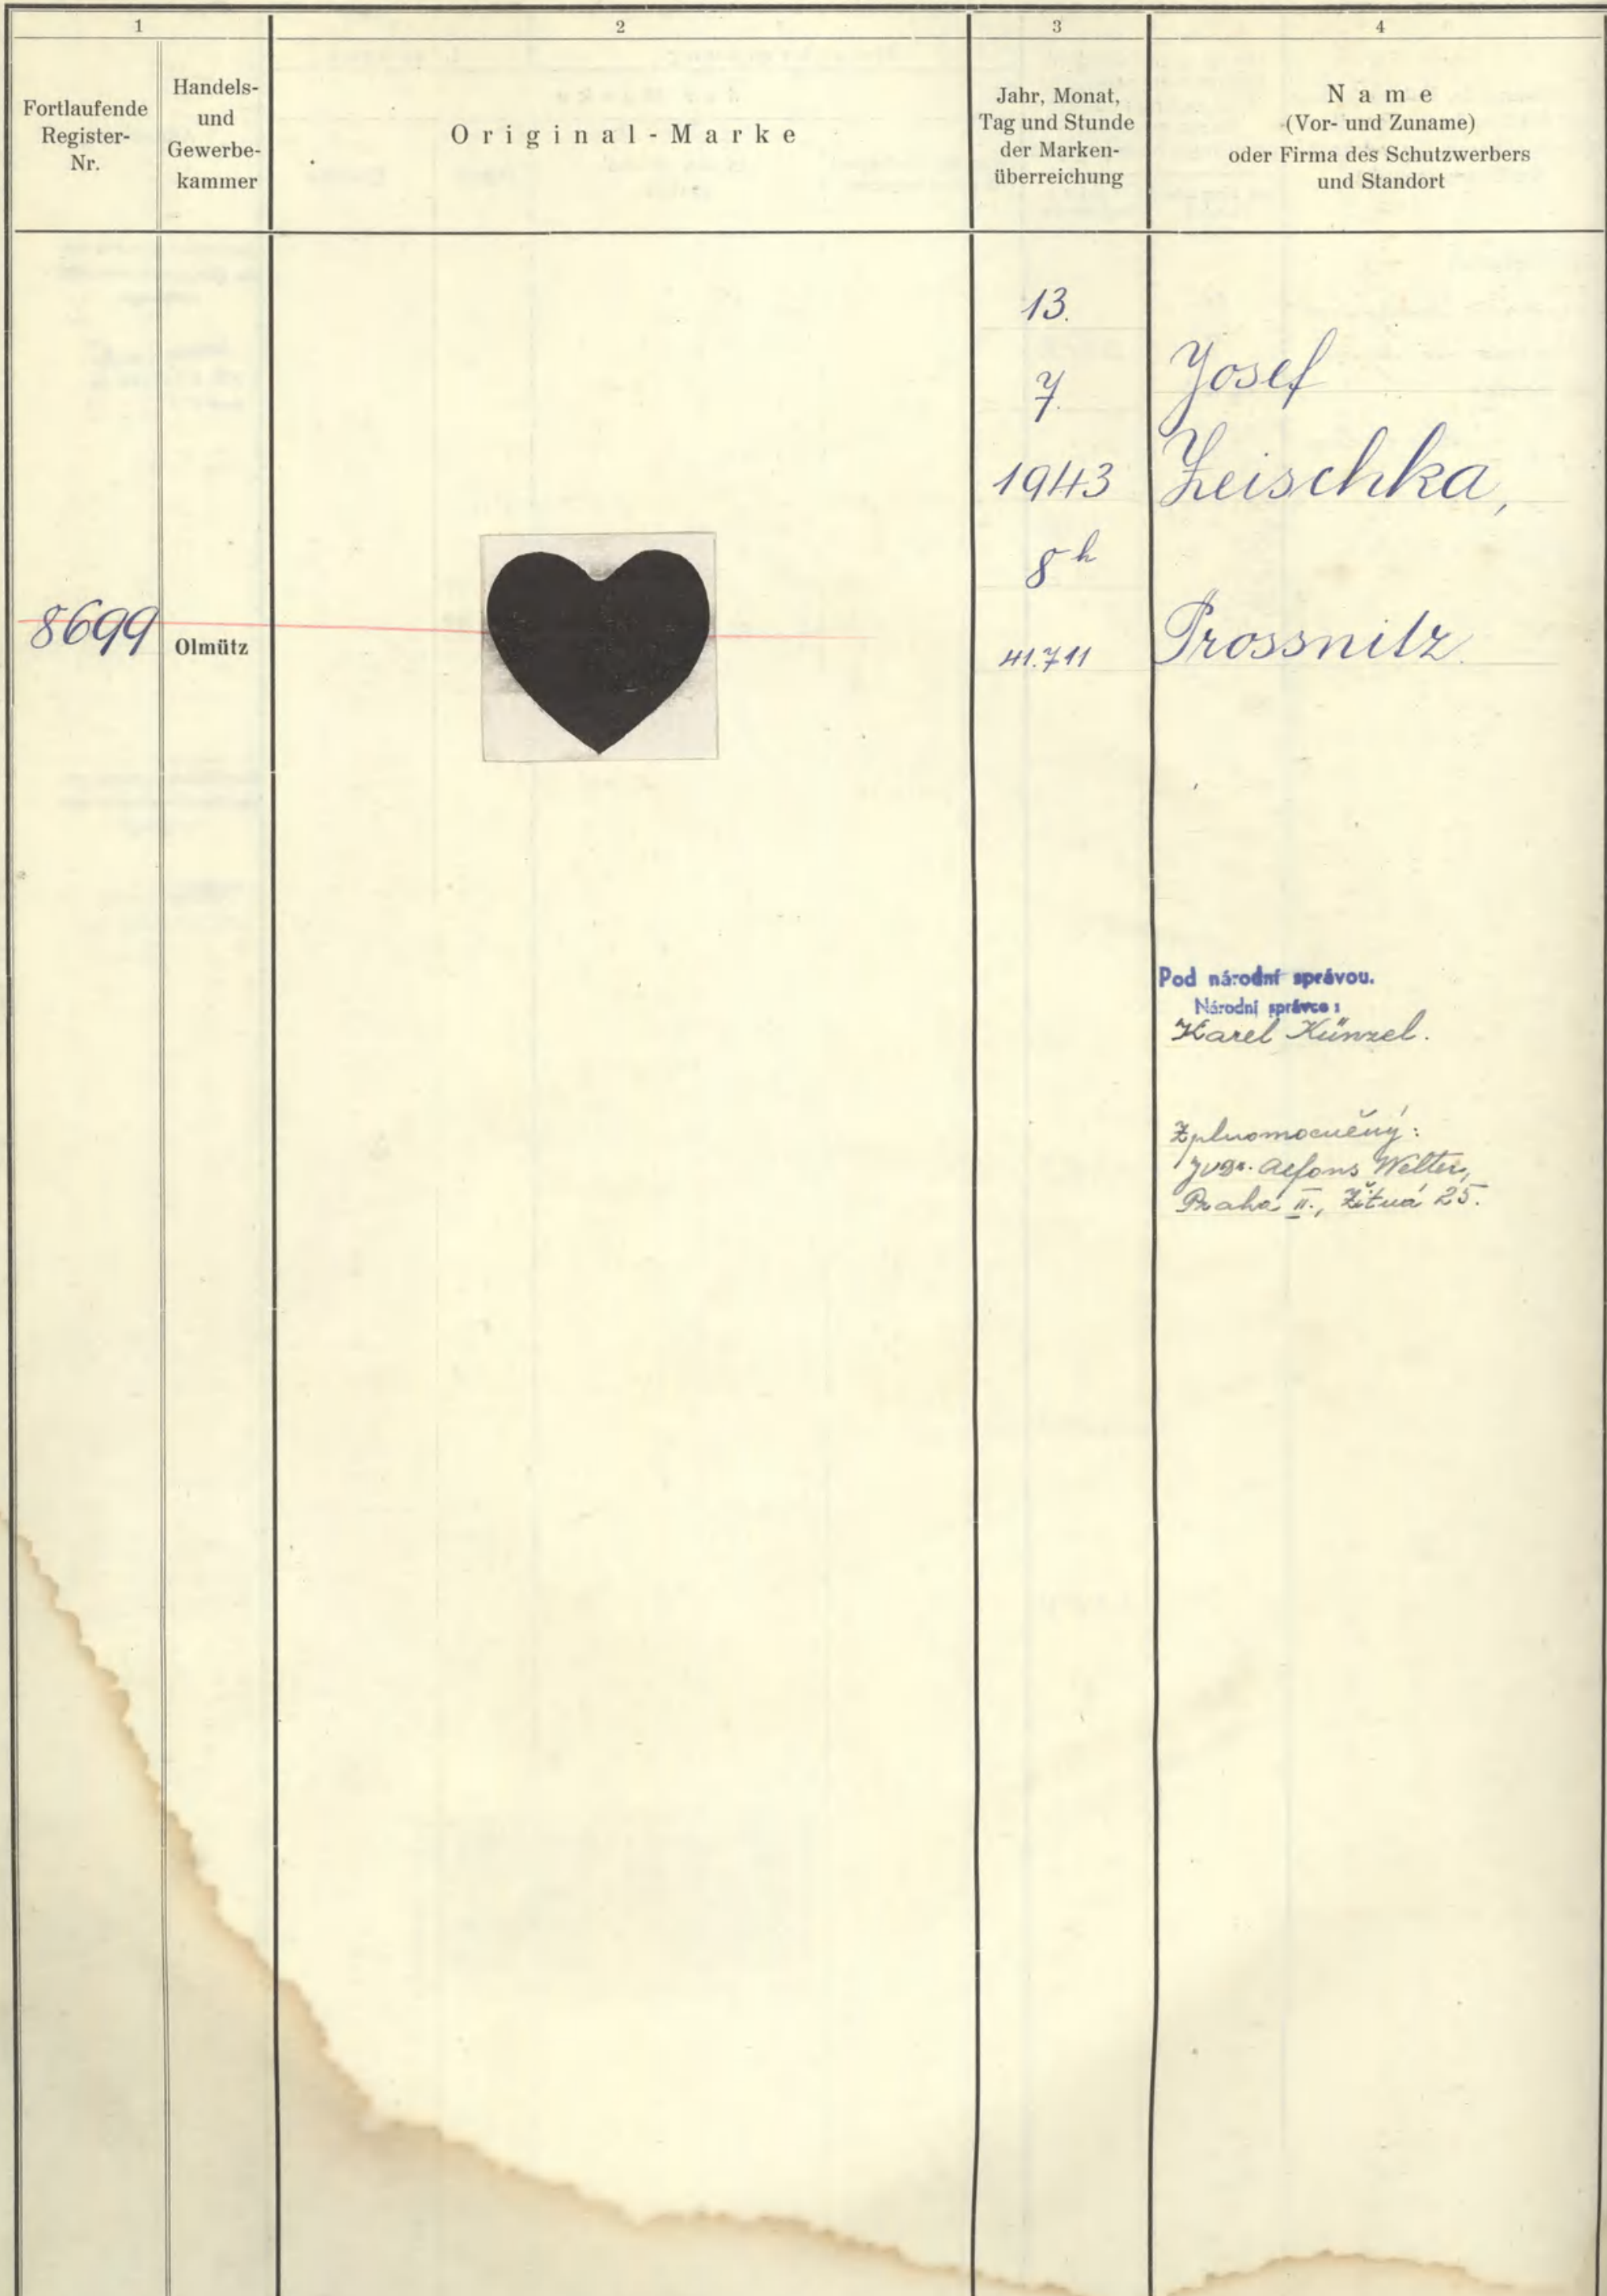 1
2
3
4
Fortlaufende
Register-
Nr.
Handels-
und
Gewerbe-
kammer
Original-Marke
Jahr, Monat,
Tag und Stunde
der Marken-
überreichung
Name
(Vor- und Zuname)
oder Firma des Schutzwerbers
und Standort
8699
Olmütz
13.
7.
1943
8h
41.711
Josef
Zeischka,
Prossnitz.
Pod národní správou.
Národní správce:
Karel Künzel.
Zplnomocněný:
JUDr. Alfons Welter,
Praha II., Žitná 25.